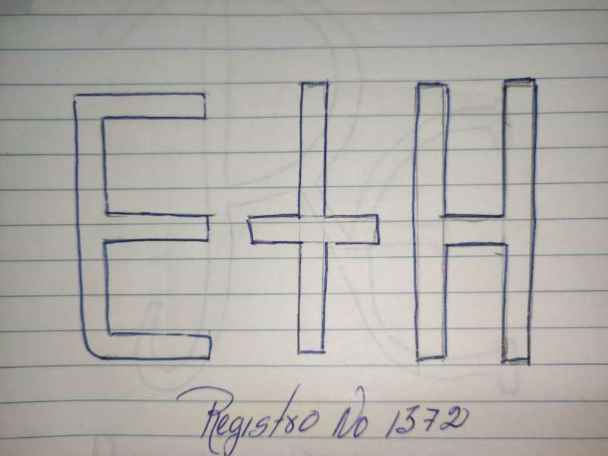 E+H
Registro No 1372